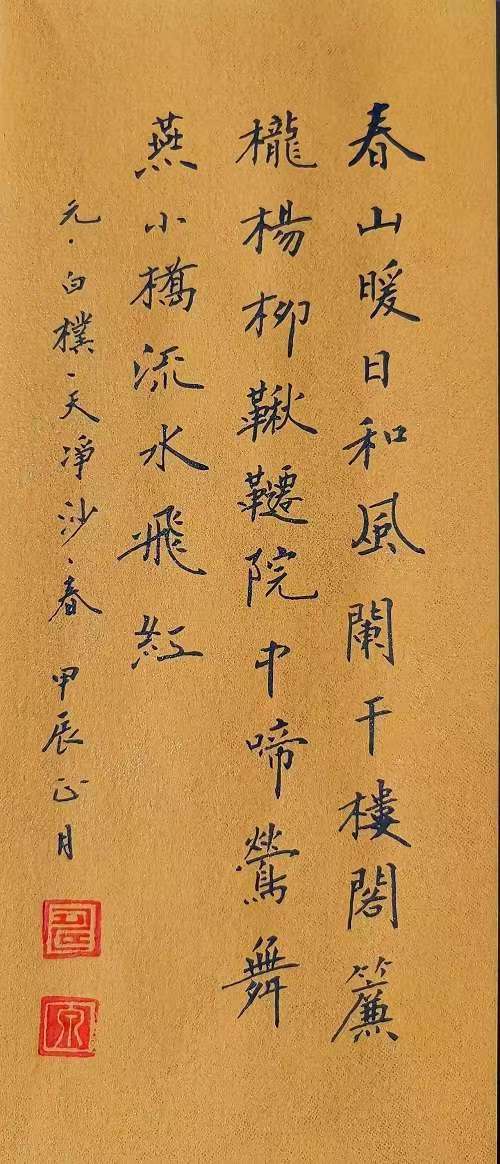 春山暖日和風闌干樓閣簾
櫳楊柳鞦韆院中啼鶯舞
燕小橋流水飛紅
元·白樸、天凈沙、春 甲辰正月